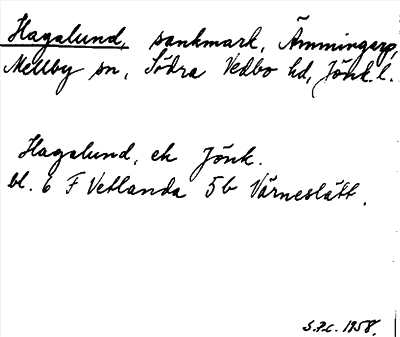 Hagalund, sankmark, Ämmingarp,
Mellby sn, Södra Vedbo hd, Jönk. l.
Hagalund, ek Jönk.
bl. 6 F Vetlanda 5b Värneslätt.
S.P.C. 1958.